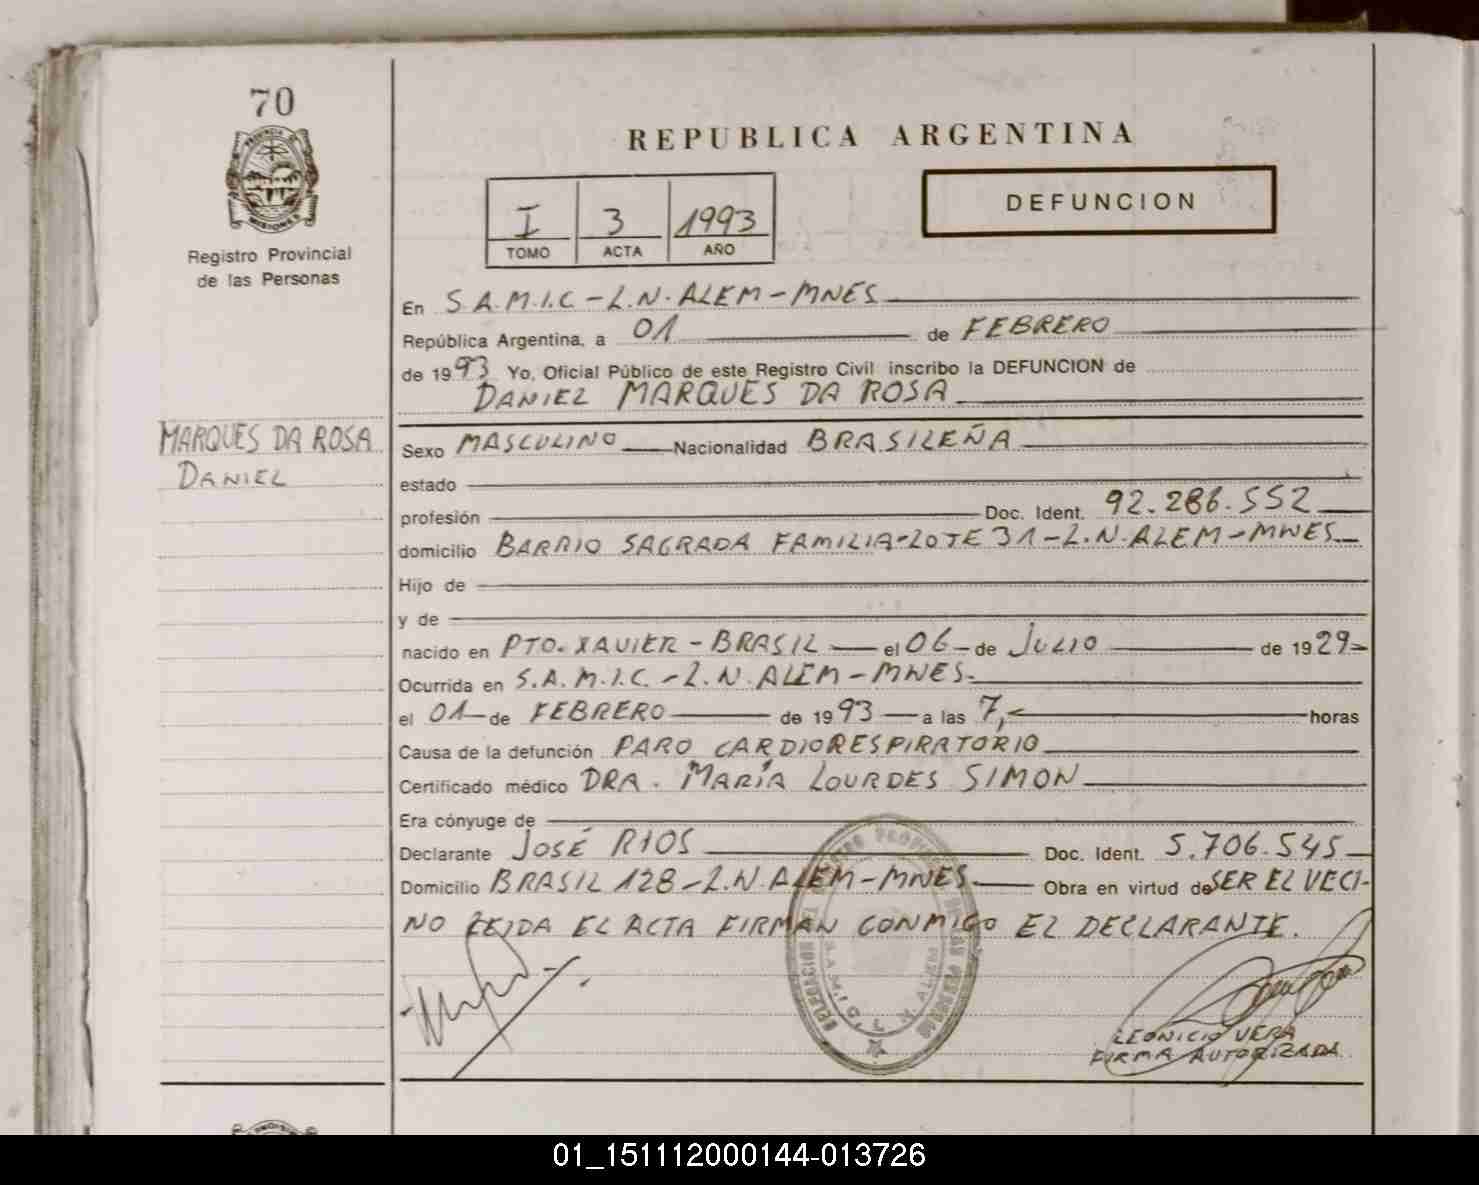 70
PROVINCIA DE
MISIONES
Registro Provincial
de las Personas
REPUBLICA ARGENTINA
I 3 1993
TOMO ACTA AÑO
DEFUNCION
En S.A.M.I.C - L.N. ALEM - MNES
República Argentina, a 01 de FEBRERO
de 1993 Yo, Oficial Público de este Registro Civil inscribo la DEFUNCION de
DANIEL MARQUES DA ROSA
MARQUES DA ROSA
DANIEL
Sexo MASCULINO Nacionalidad BRASILEÑA
estado
profesión Doc. Ident. 92.286.552
domicilio BARRIO SAGRADA FAMILIA - LOTE 31 - L.N. ALEM - MNES
Hijo de
y de
nacido en PTO. XAVIER - BRASIL el 06 de JULIO de 1929
Ocurrida en S.A.M.I.C. - L.N. ALEM - MNES.
el 01 de FEBRERO de 1993 a las 7, horas
Causa de la defunción PARO CARDIORESPIRATORIO
Certificado médico DRA. MARÍA LOURDES SIMON
Era cónyuge de
Declarante JOSÉ RIOS Doc. Ident. 5.706.545
Domicilio BRASIL 128 - L.N. ALEM - MNES Obra en virtud de SER EL VECI-
NO LEIDA EL ACTA FIRMAN CONMIGO EL DECLARANTE.
S.A.M.I.C. L. N. ALEM
LEONICIO VERA
FIRMA AUTORIZADA
01_151112000144-013726